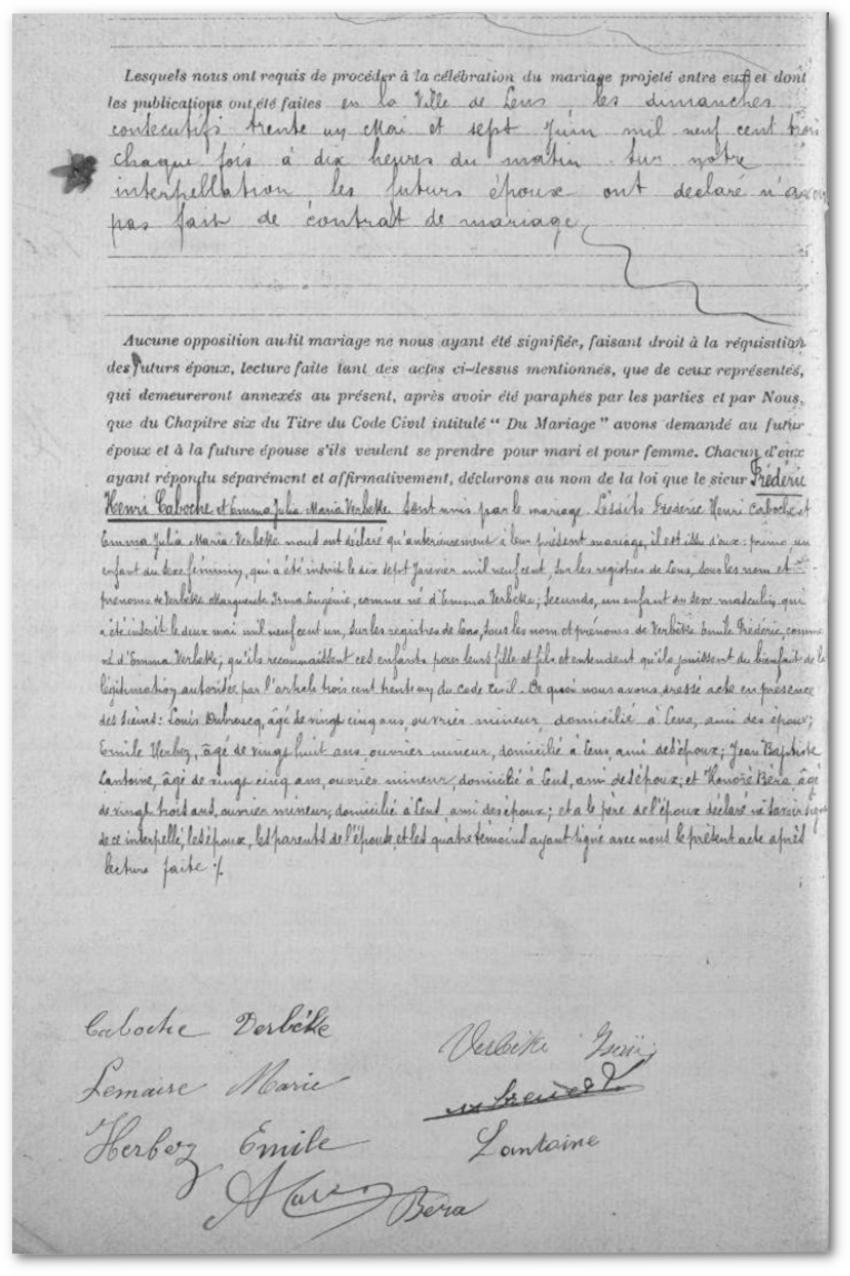 Lesquels nous ont requis de procéder à la célébration du mariage projeté entre eux et dont
les publications ont été faites en la Ville de Lens, les dimanches
consécutifs trente un Mai et sept Juin mil neuf cent trois
chaque fois à dix heures du matin. Sur notre
interpellation les futurs époux ont déclaré n'avoir
pas fait de contrat de mariage.
Aucune opposition audit mariage ne nous ayant été signifiée, faisant droit à la réquisition
des futurs époux, lecture faite tant des actes ci-dessus mentionnés, que de ceux représentés,
qui demeureront annexés au présent, après avoir été paraphés par les parties et par Nous,
que du Chapitre six du Titre du Code Civil intitulé " Du Mariage " avons demandé au futur
époux et à la future épouse s'ils veulent se prendre pour mari et pour femme. Chacun d'eux
ayant répondu séparément et affirmativement, déclarons au nom de la loi que le sieur Fréderic
Henri Caboche et Emma Julia Maria Verbèke sont unis par le mariage. Lesdits Fréderic Henri Caboche et
Emma Julia Maria Verbèke nous ont déclaré qu'antérieurement à leur présent mariage, il est issu d'eux : primo, un
enfant du sexe féminin, qui a été inscrit le dix sept Janvier mil neuf cent, sur les registres de Lens, sous les nom et
prénoms de Verbèke Marguerite Irma Eugénie, comme né d'Emma Verbèke ; secundo, un enfant du sexe masculin qui
a été inscrit le deux mai mil neuf cent un, sur les registres de Lens, sous les nom et prénoms de Verbèke Emile Fréderic, comme
né d'Emma Verbèke ; qu'ils reconnaissent ces enfants pour leurs fille et fils et entendent qu'ils jouissent du bienfait de la
légitimation autorisée par l'article trois cent trente un du code civil. De quoi nous avons dressé acte en présence
des sieurs : Louis Dubrucq, âgé de vingt cinq ans, ouvrier mineur, domicilié à Lens, ami des époux ;
Emile Herbez, âgé de vingt huit ans, ouvrier mineur, domicilié à Lens, ami des époux ; Jean Baptiste
Lantoine, âgé de vingt cinq ans, ouvrier mineur, domicilié à Lens, ami des époux ; et Honoré Bera, âgé
de vingt trois ans, ouvrier mineur, domicilié à Lens, ami des époux ; et a le père de l'époux déclaré ne savoir signer
de ce interpellé, les époux, les parents de l'épouse, et les quatre témoins ayant signé avec nous le présent acte après
lecture faite ./.
Caboche Verbèke
Verbèke
Lemaire Marie
Herbez Emile
Lantoine
Bera